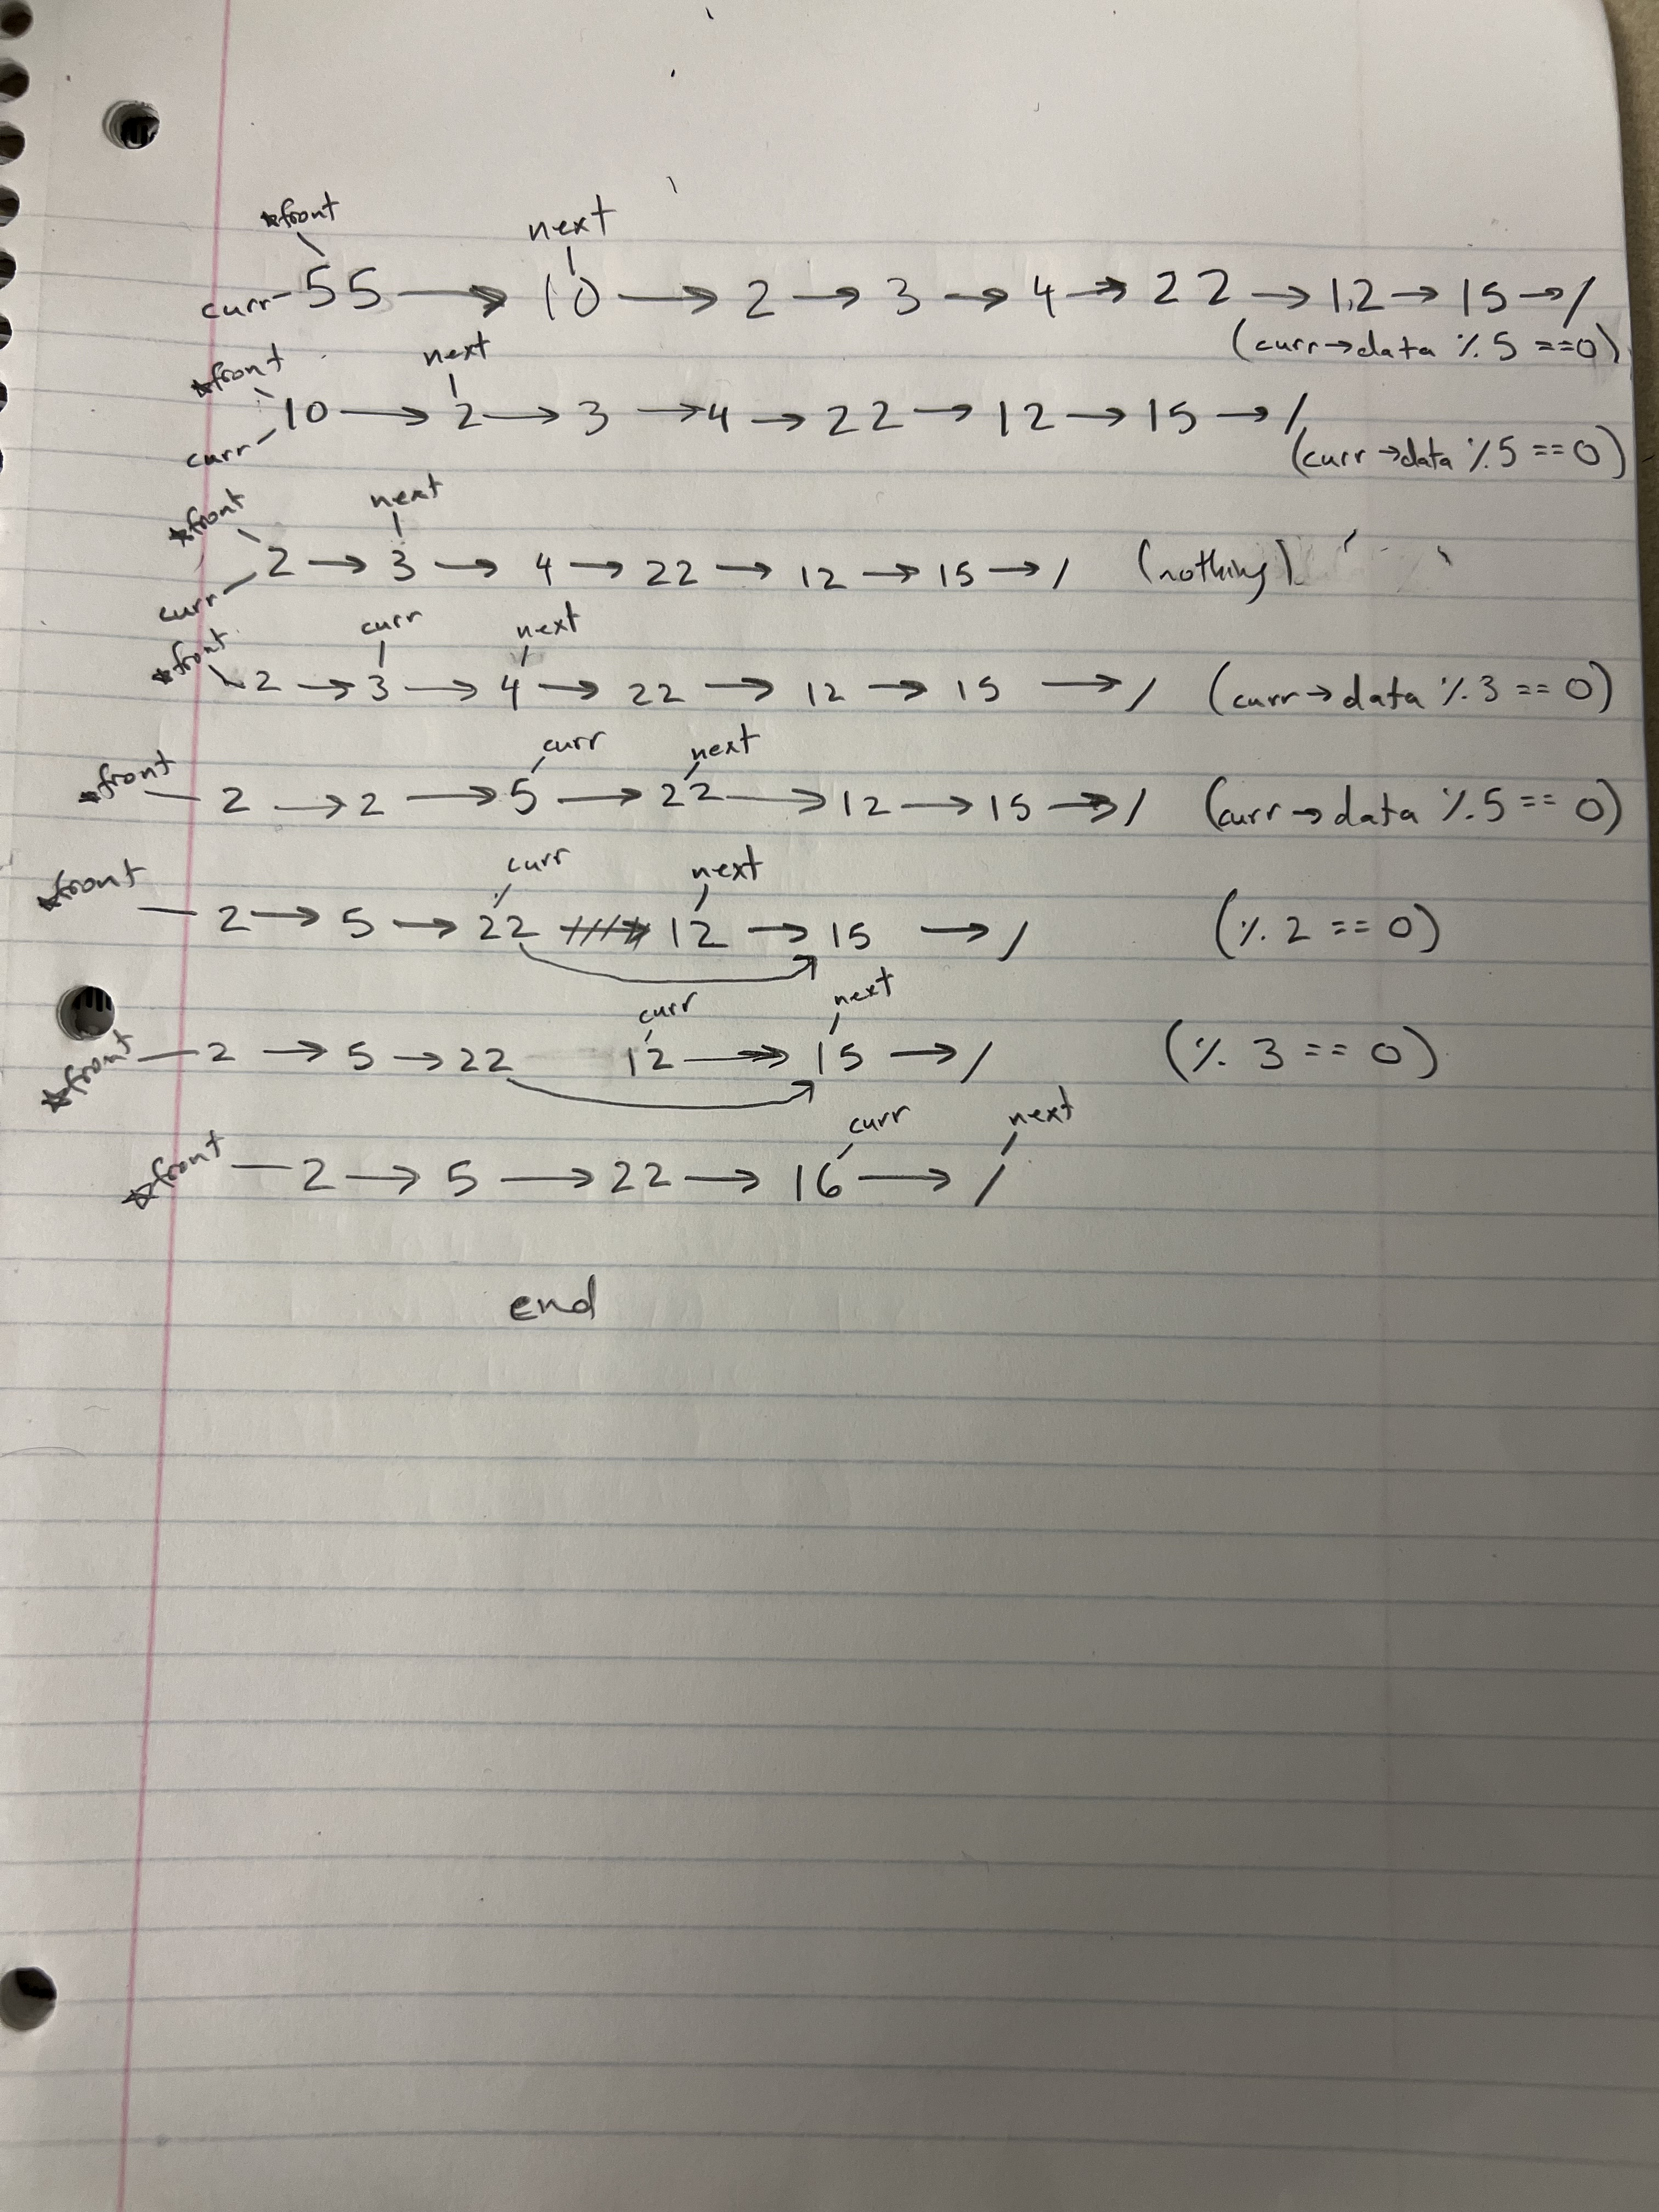 *front next
curr 55 → 10 → 2 → 3 → 4 → 22 → 12 → 15 → /
(curr→data % 5 ==0)
*front next
10 → 2 → 3 → 4 → 22 → 12 → 15 → /
curr (curr→data % 5 == 0)
*front next
2 → 3 → 4 → 22 → 12 → 15 → / (nothing)
curr
*front curr next
2 → 3 → 4 → 22 → 12 → 15 → / (curr→data % 3 == 0)
curr next
*front — 2 → 2 → 5 → 22 → 12 → 15 → / (curr→data % 5 == 0)
curr next
*front — 2 → 5 → 22 → 12 → 15 → / (% 2 == 0)
curr next
*front — 2 → 5 → 22 12 → 15 → / (% 3 == 0)
curr next
*front — 2 → 5 → 22 → 16 → /
end